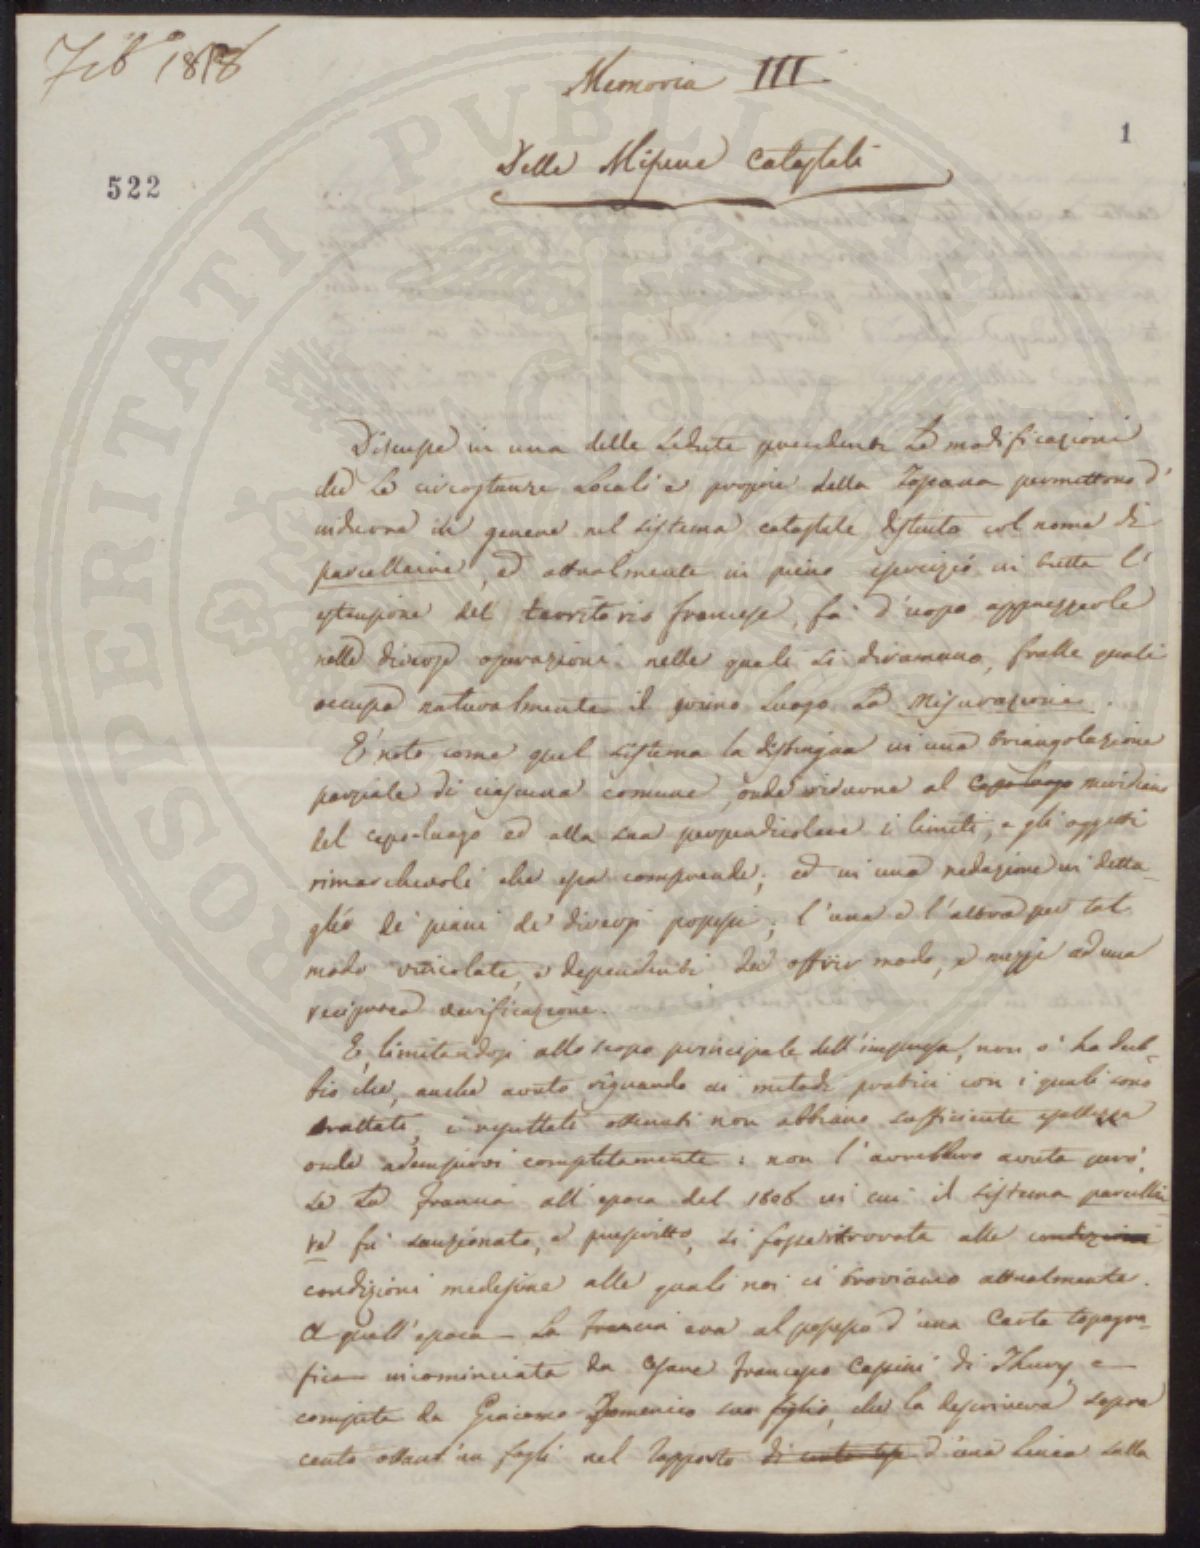 Feb.º 1818
Memoria III.
1
Delle Misure Catastali
522
Discusse in una delle sedute precedenti le modificazioni
che le circostanze locali e proprie della Toscana permettono d'
indurre in genere nel sistema catastale distinto col nome di
parcellaire, ed attualmente in pieno esercizio in tutta l'
estensione del territorio francese, fa d'uopo apprezzarle
nelle diverse operazioni nelle quali si diramano, fralle quali
occupa naturalmente il primo luogo la Misurazione.
È noto come quel sistema la distingua in una triangolazione
parziale di ciascuna comune, onde ridurre al capo-luogo meridiano
del capo-luogo ed alla sua perpendicolare i limiti, e gli oggetti
rimarchevoli che essa comprende; ed in una redazione in detta-
glio de' piani de' diversi possessi; l'una e l'altra per tal
modo vincolate, e dependenti da offrir modo, e mezzi ad una
reciproca verificazione.
E, limitandosi allo scopo principale dell'impresa, non v'ha dub-
bio che, anche avuto riguardo ai metodi pratici con i quali sono
trattate, i resultati ottenuti non abbiano sufficiente esattezza
onde adempiervi completamente: non l'avrebbero avuta però,
se la Francia all'epoca del 1808 in cui il sistema parcellai-
re fu sanzionato, e prescritto, si fosse ritrovata alle condizioni
condizioni medesime alle quali noi ci troviamo attualmente.
A quell'epoca la Francia era al possesso d'una Carta topogra-
fica incominciata da Cesare Francesco Cassini di Thury, e
compita da Giacomo Domenico suo figlio, che la descriveva sopra
cento ottant'un fogli nel rapporto di cento tese d'una linea sulla